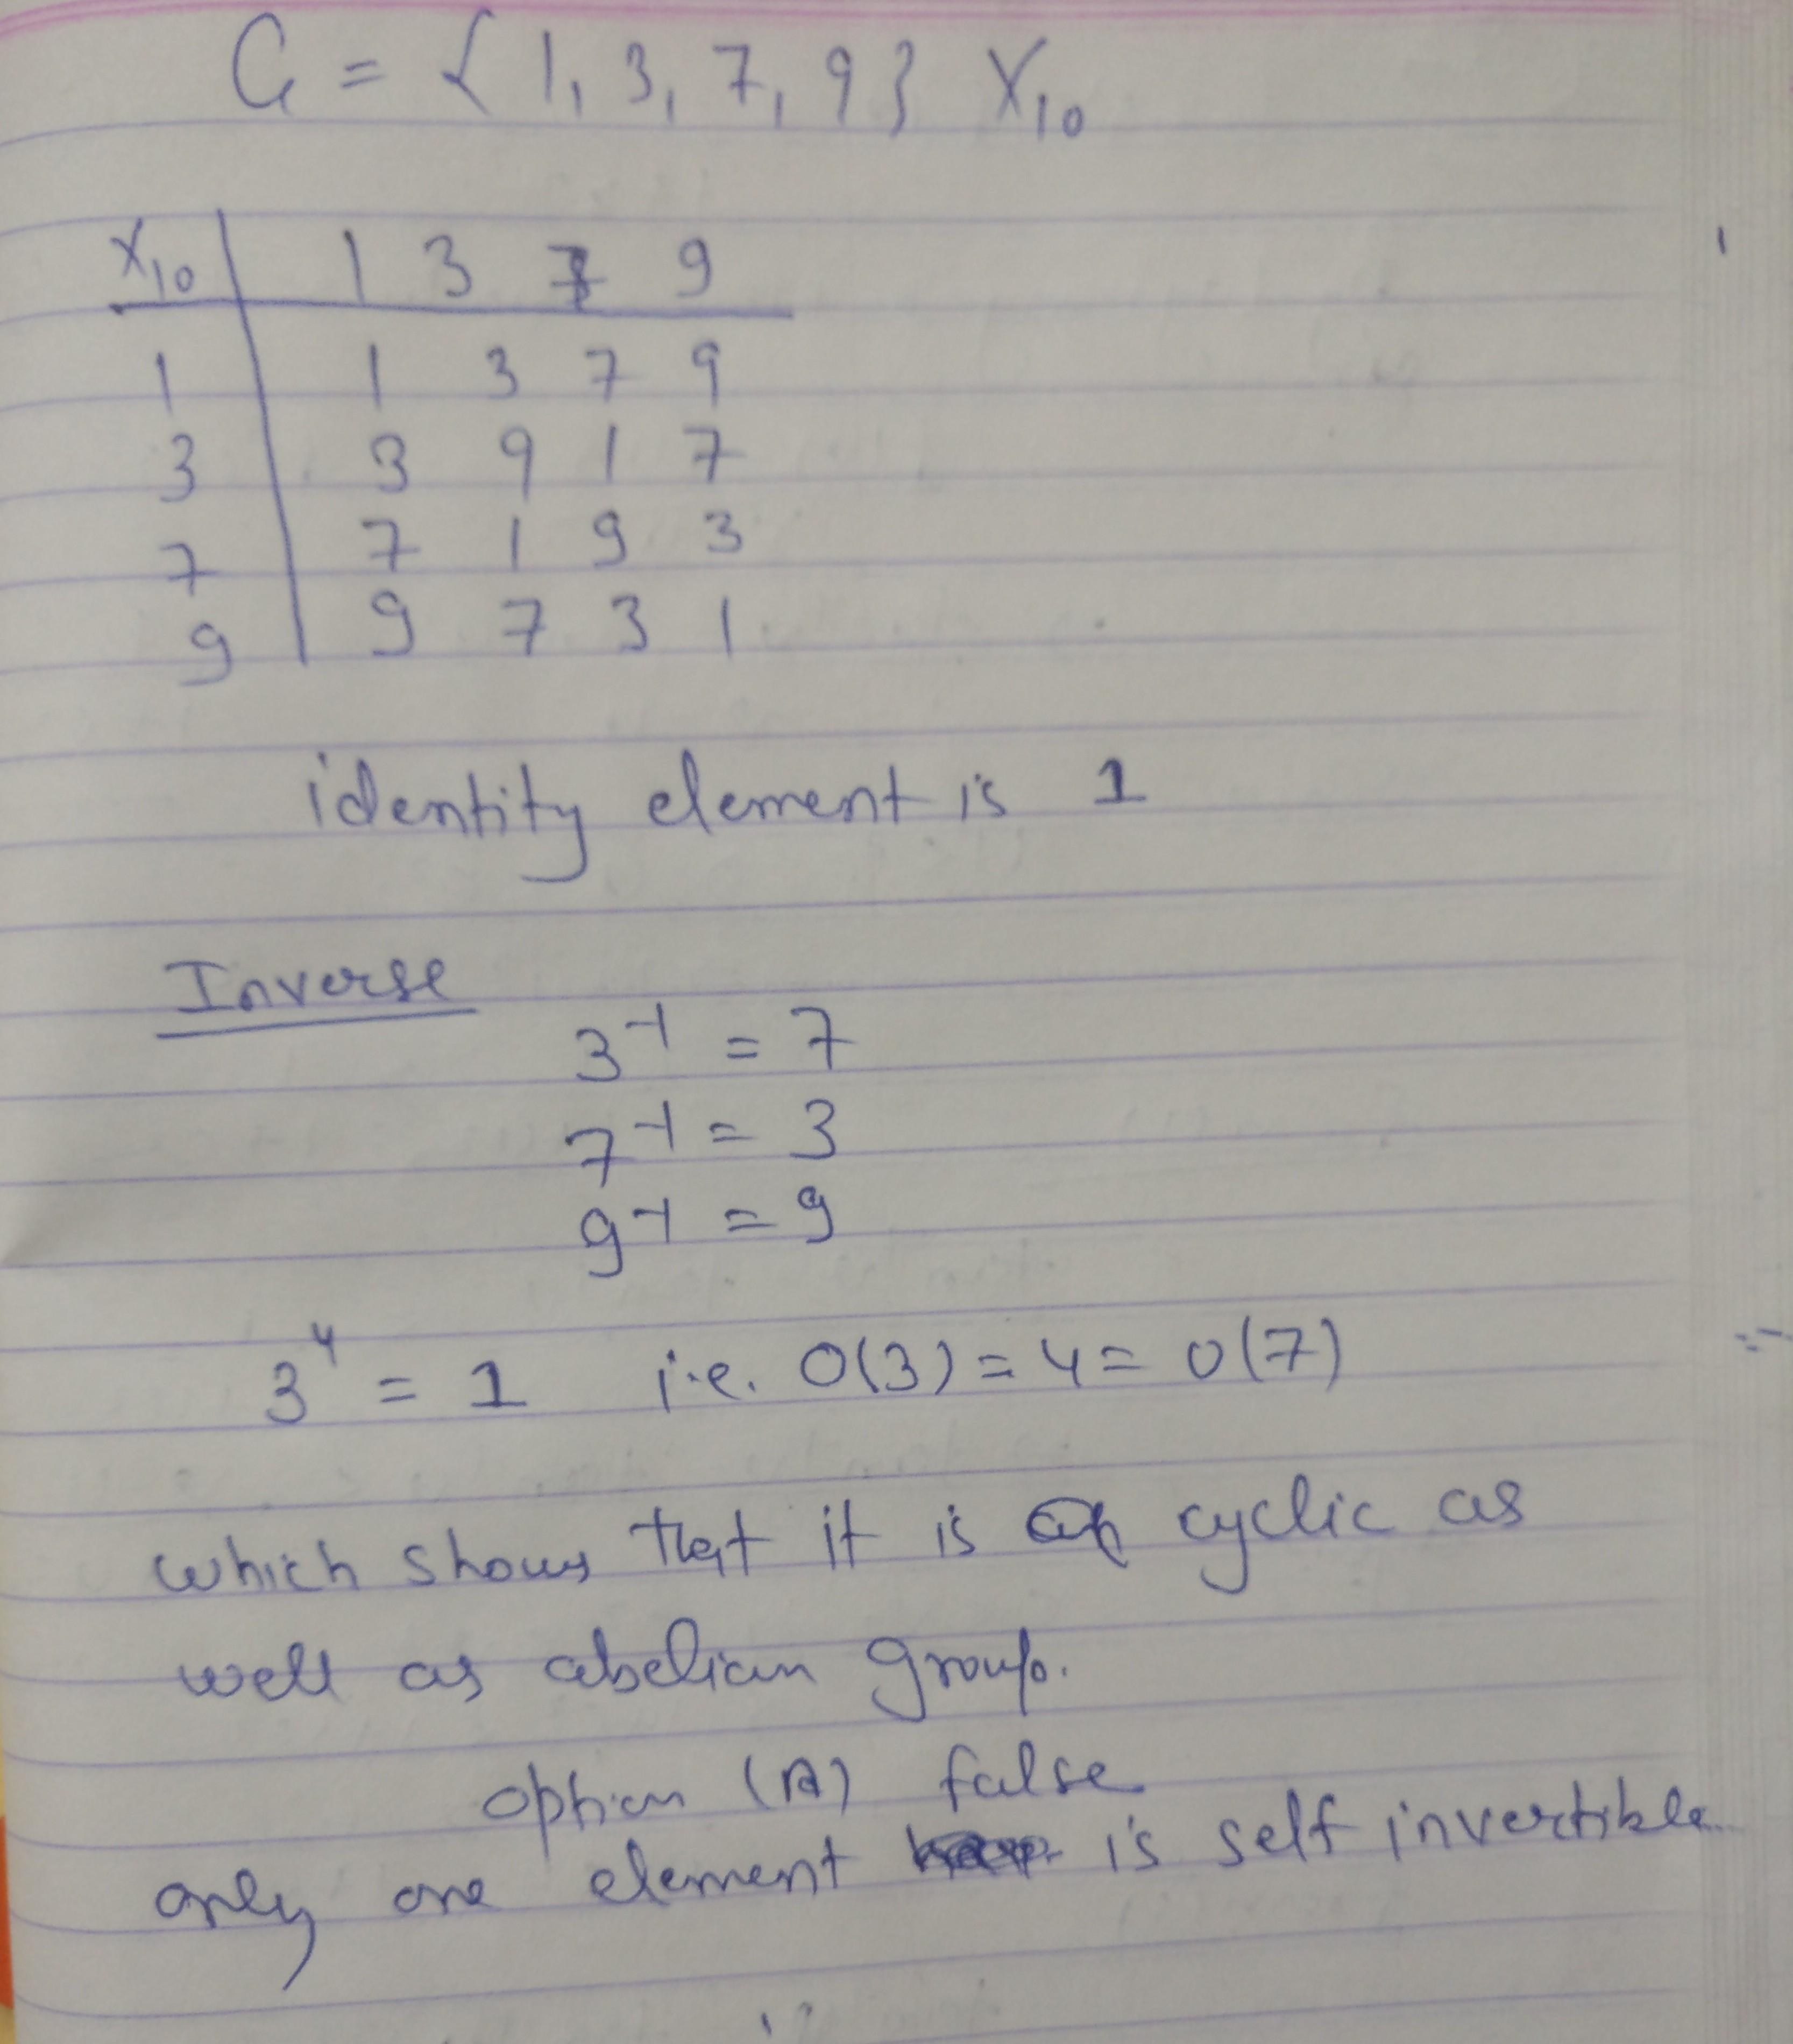 G = { 1, 3, 7, 9 } X10
X10 | 1 3 7 9
1 | 1 3 7 9
3 | 3 9 1 7
7 | 7 1 9 3
9 | 9 7 3 1
identity element is 1
Inverse
3⁻¹ = 7
7⁻¹ = 3
9⁻¹ = 9
3⁴ = 1 i.e. O(3) = 4 = O(7)
which shows that it is cyclic as
well as abelian group.
option (A) false
only one element is self invertible